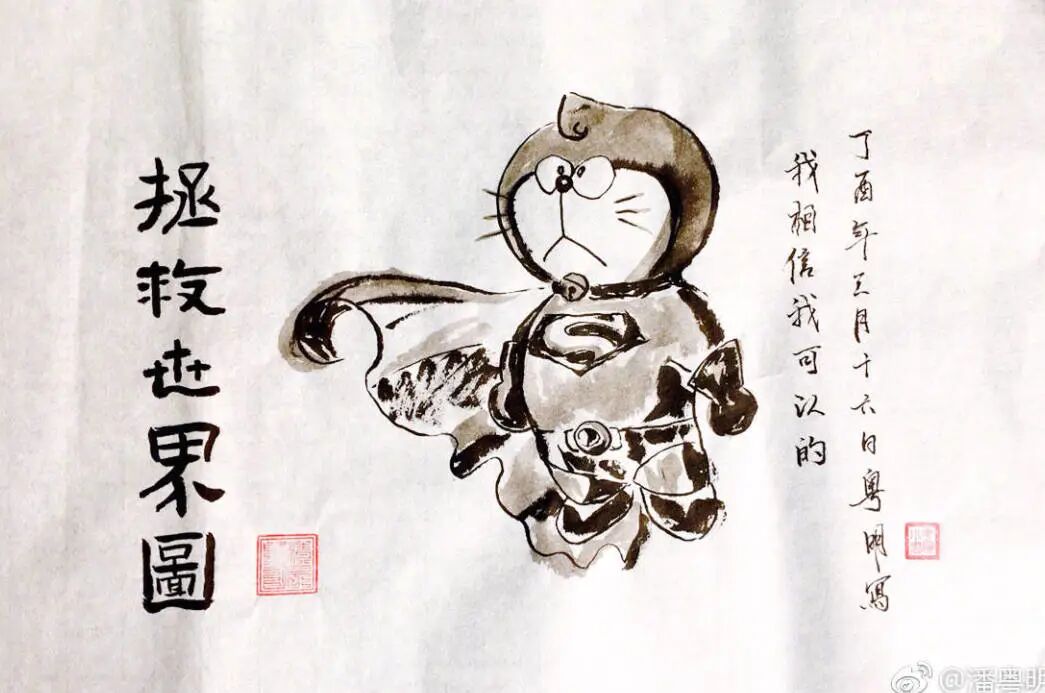 丁酉年三月十六日粤明写
我相信我可以的
拯救世界圖
@潘粤明